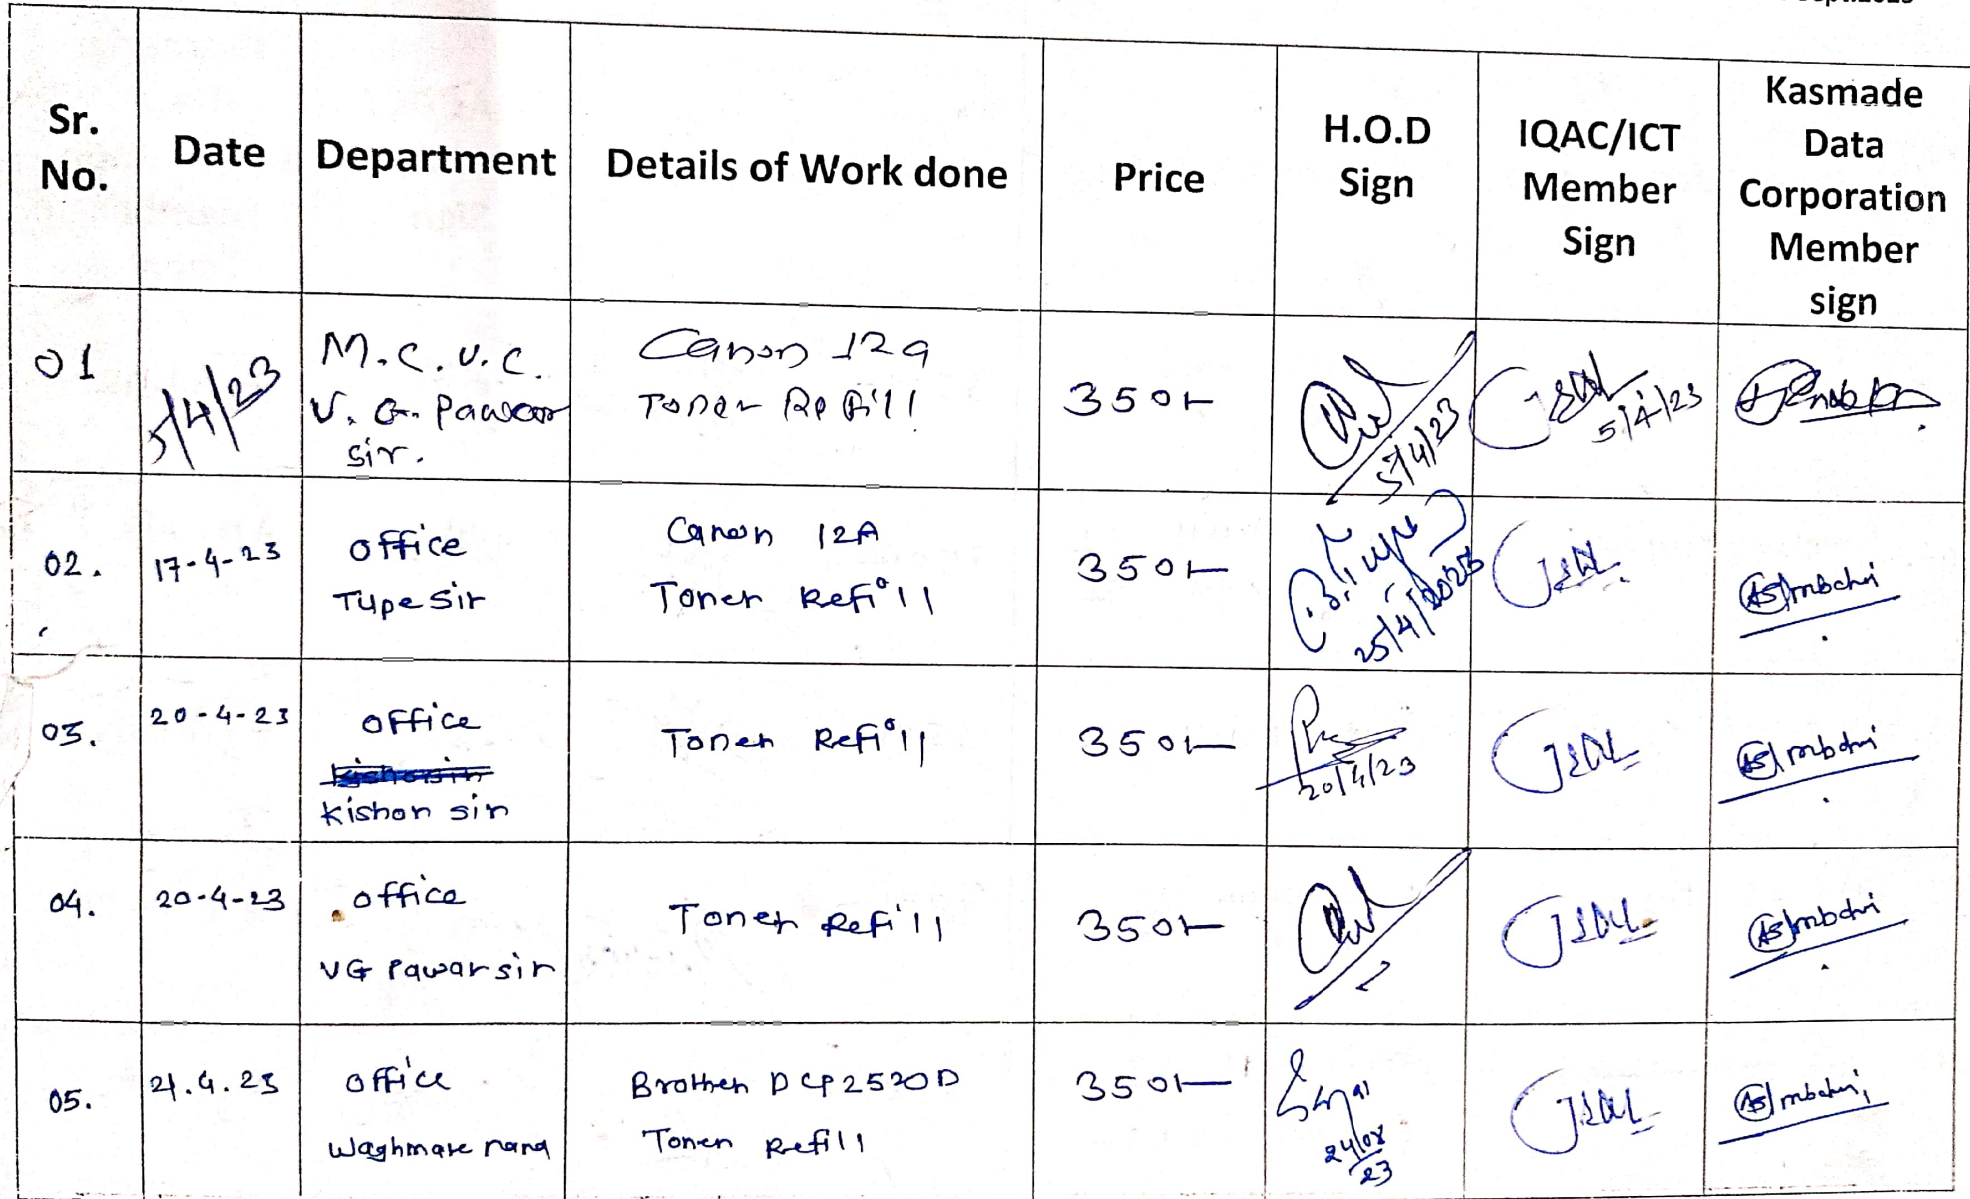 Sr.
No.
Date
Department
Details of Work done
Price
H.O.D
Sign
IQAC/ICT
Member
Sign
Kasmade
Data
Corporation
Member
sign
01
5/4/23
M.C.V.C.
V. G. Pawar
sir.
Canon 12a
Toner Refill
350/-
5/4/23
5/4/23
02.
17-4-23
office
Type sir
Canon 12A
Toner Refill
350/-
25/4/2023
03.
20-4-23
office
kishor sir
Toner Refill
350/-
20/4/23
04.
20-4-23
office
VG Pawar sir
Toner Refill
350/-
05.
21.4.23
office
Waghmare nana
Brother DCP2520D
Toner Refill
350/-